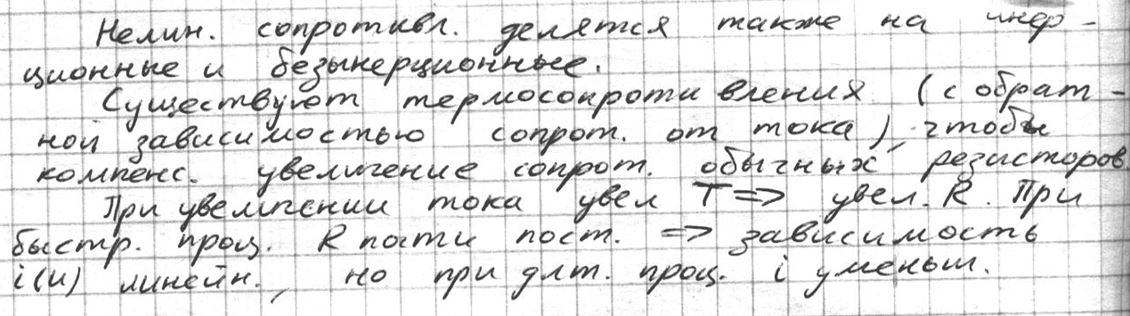 Нелин. сопротивл. делятся также на инер-
ционные и безынерционные.
Существуют термосопротивления (с обрат-
ной зависимостью сопрот. от тока), чтобы
компенс. увеличение сопрот. обычных резисторов.
При увеличении тока увел T => увел. R. При
быстр. проц. R почти пост. => зависимость
i(u) линейн., но при длт. проц. i уменьш.